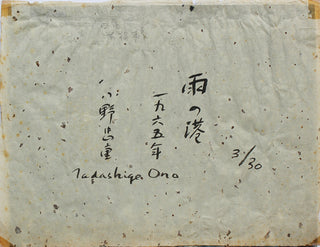 雨の港
一九六五年
小野忠重
Tadashige Ono
3/30